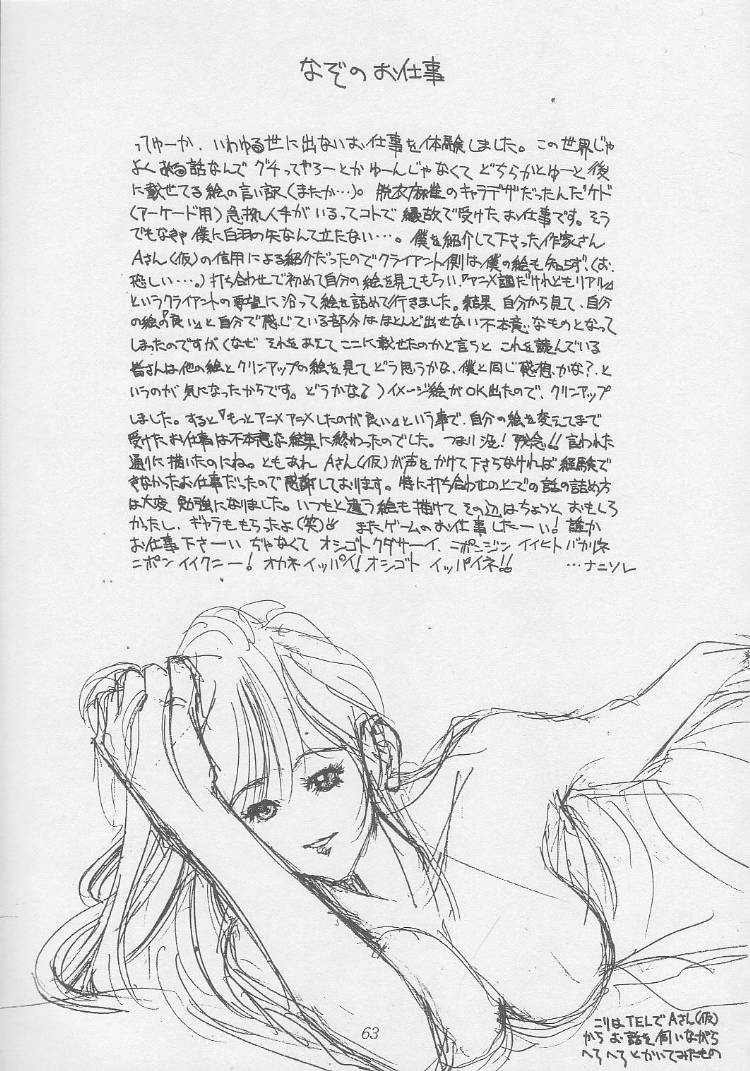 なぞのお仕事
ってゆーか、いわゆる世に出ないお仕事を体験しました。この世界じゃ
よくある話なんで グチってやろーとかゆーんじゃなくて どちらかとゆーと後
に載せてる絵の言い訳(またか…)。脱衣麻雀のキャラデザだったんだケド
(アーケード用)急拠人手がいるってコトで縁故で受けたお仕事です。そう
でもなきゃ僕に白羽の矢なんて立たない…。僕を紹介して下さった作家さん
Aさん(仮)の信用による紹介だったのでクライアント側は僕の絵も知らず、(お、
恐しい…。)打ち合わせで初めて自分の絵を見てもらい、『アニメ調だけれどもリアル』
というクライアントの要望に沿って絵を詰めて行きました。結果 自分から見て、自分
の絵の『良い』と自分で感じている部分はほとんど出せない不本意なものとなって
しまったのですが(なぜ それをあえてここに載せたのかと言うと これを読んでいる
皆さんは他の絵とクリンアップの絵を見て どう思うかな、僕と同じ感想かな?と
いうのが気になったからです。どうかな?)イメージ絵がOK出たので、クリンアップ
しました。すると『もっとアニメアニメしたのが良い』という事で、自分の絵を変えてまで
受けたお仕事は不本意な結果に終わったのでした。つまり没!残念!!言われた
通りに描いたのにね。ともあれ Aさん(仮)が声をかけて下さらなければ経験で
きなかったお仕事だったので感謝しております。特に打ち合わせの上での話の詰め方
は大変 勉強になりました。いつもと違う絵も描けて その辺はちょっと おもしろ
かったし、ギャラももらったよ(笑) またゲームのお仕事したーい!誰か
お仕事下さーい ぢゃなくて オシゴトクダサーイ、ニポンジン イイヒトバカリネ
ニポン イイクニー!オカネイッパイ!オシゴト イッパイネ!! …ナニソレ
63
こりはTELでAさん(仮)
から お話を伺いながら
へろへろとかいてみたもの